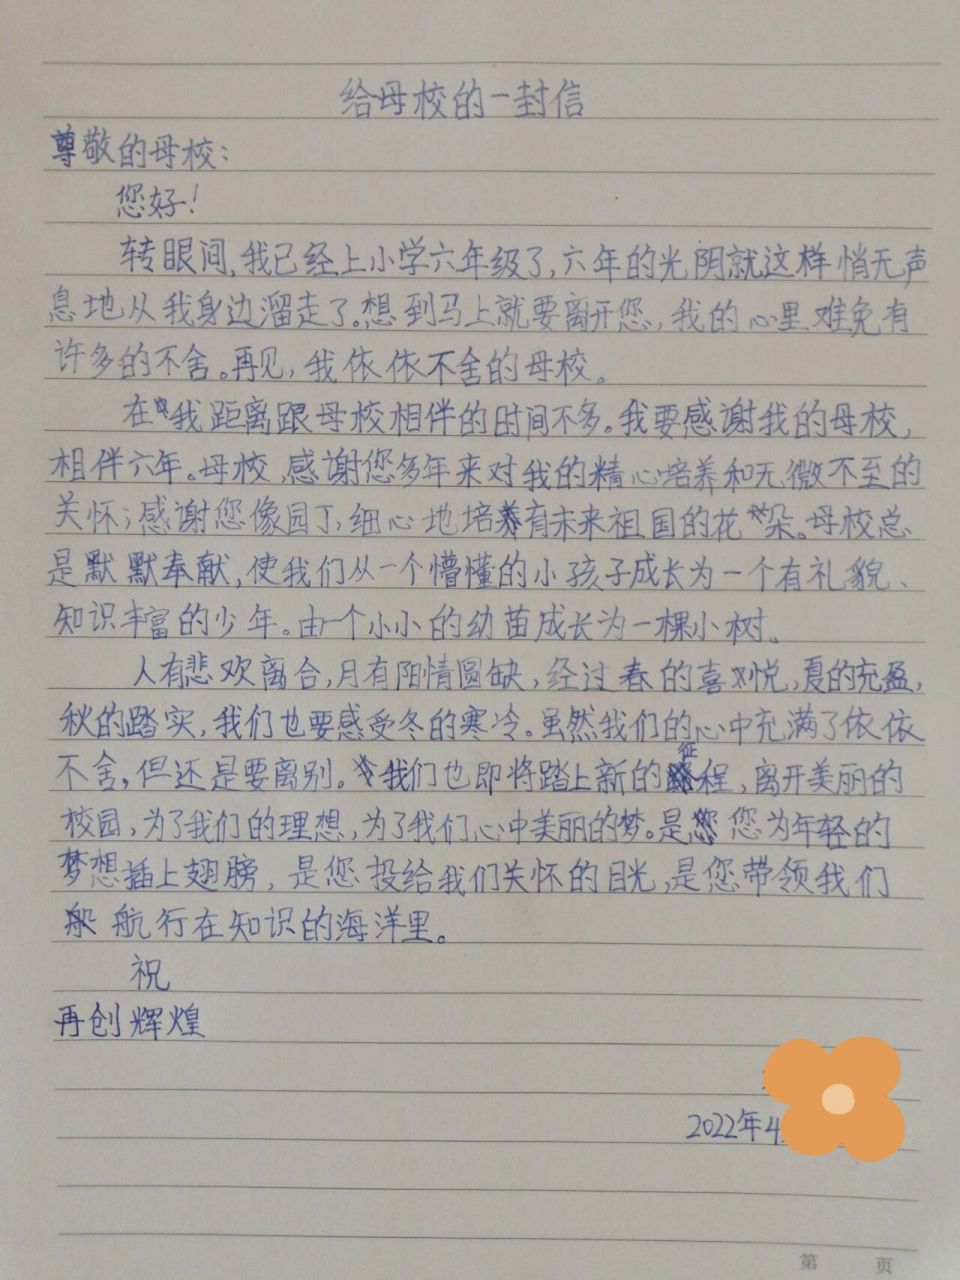 给母校的一封信
尊敬的母校:
您好!
转眼间,我已经上小学六年级了,六年的光阴就这样悄无声
息地从我身边溜走了。想到马上就要离开您,我的心里难免有
许多的不舍。再见,我依依不舍的母校。
在我距离跟母校相伴的时间不多。我要感谢我的母校,
相伴六年。母校,感谢您多年来对我的精心培养和无微不至的
关怀;感谢您像园丁,细心地培养有未来祖国的花朵。母校总
是默默奉献,使我们从一个懵懂的小孩子成长为一个有礼貌、
知识丰富的少年。由一个小小的幼苗成长为一棵小树。
人有悲欢离合,月有阳情圆缺,经过春的喜悦,夏的充盈,
秋的踏实,我们也要感受冬的寒冷。虽然我们的心中充满了依依
不舍,但还是要离别。我们也即将踏上新的征程,离开美丽的
校园,为了我们的理想,为了我们心中美丽的梦。是您为年轻的
梦想插上翅膀,是您投给我们关怀的目光,是您带领我们
航行在知识的海洋里。
祝
再创辉煌
2022年4
第 页